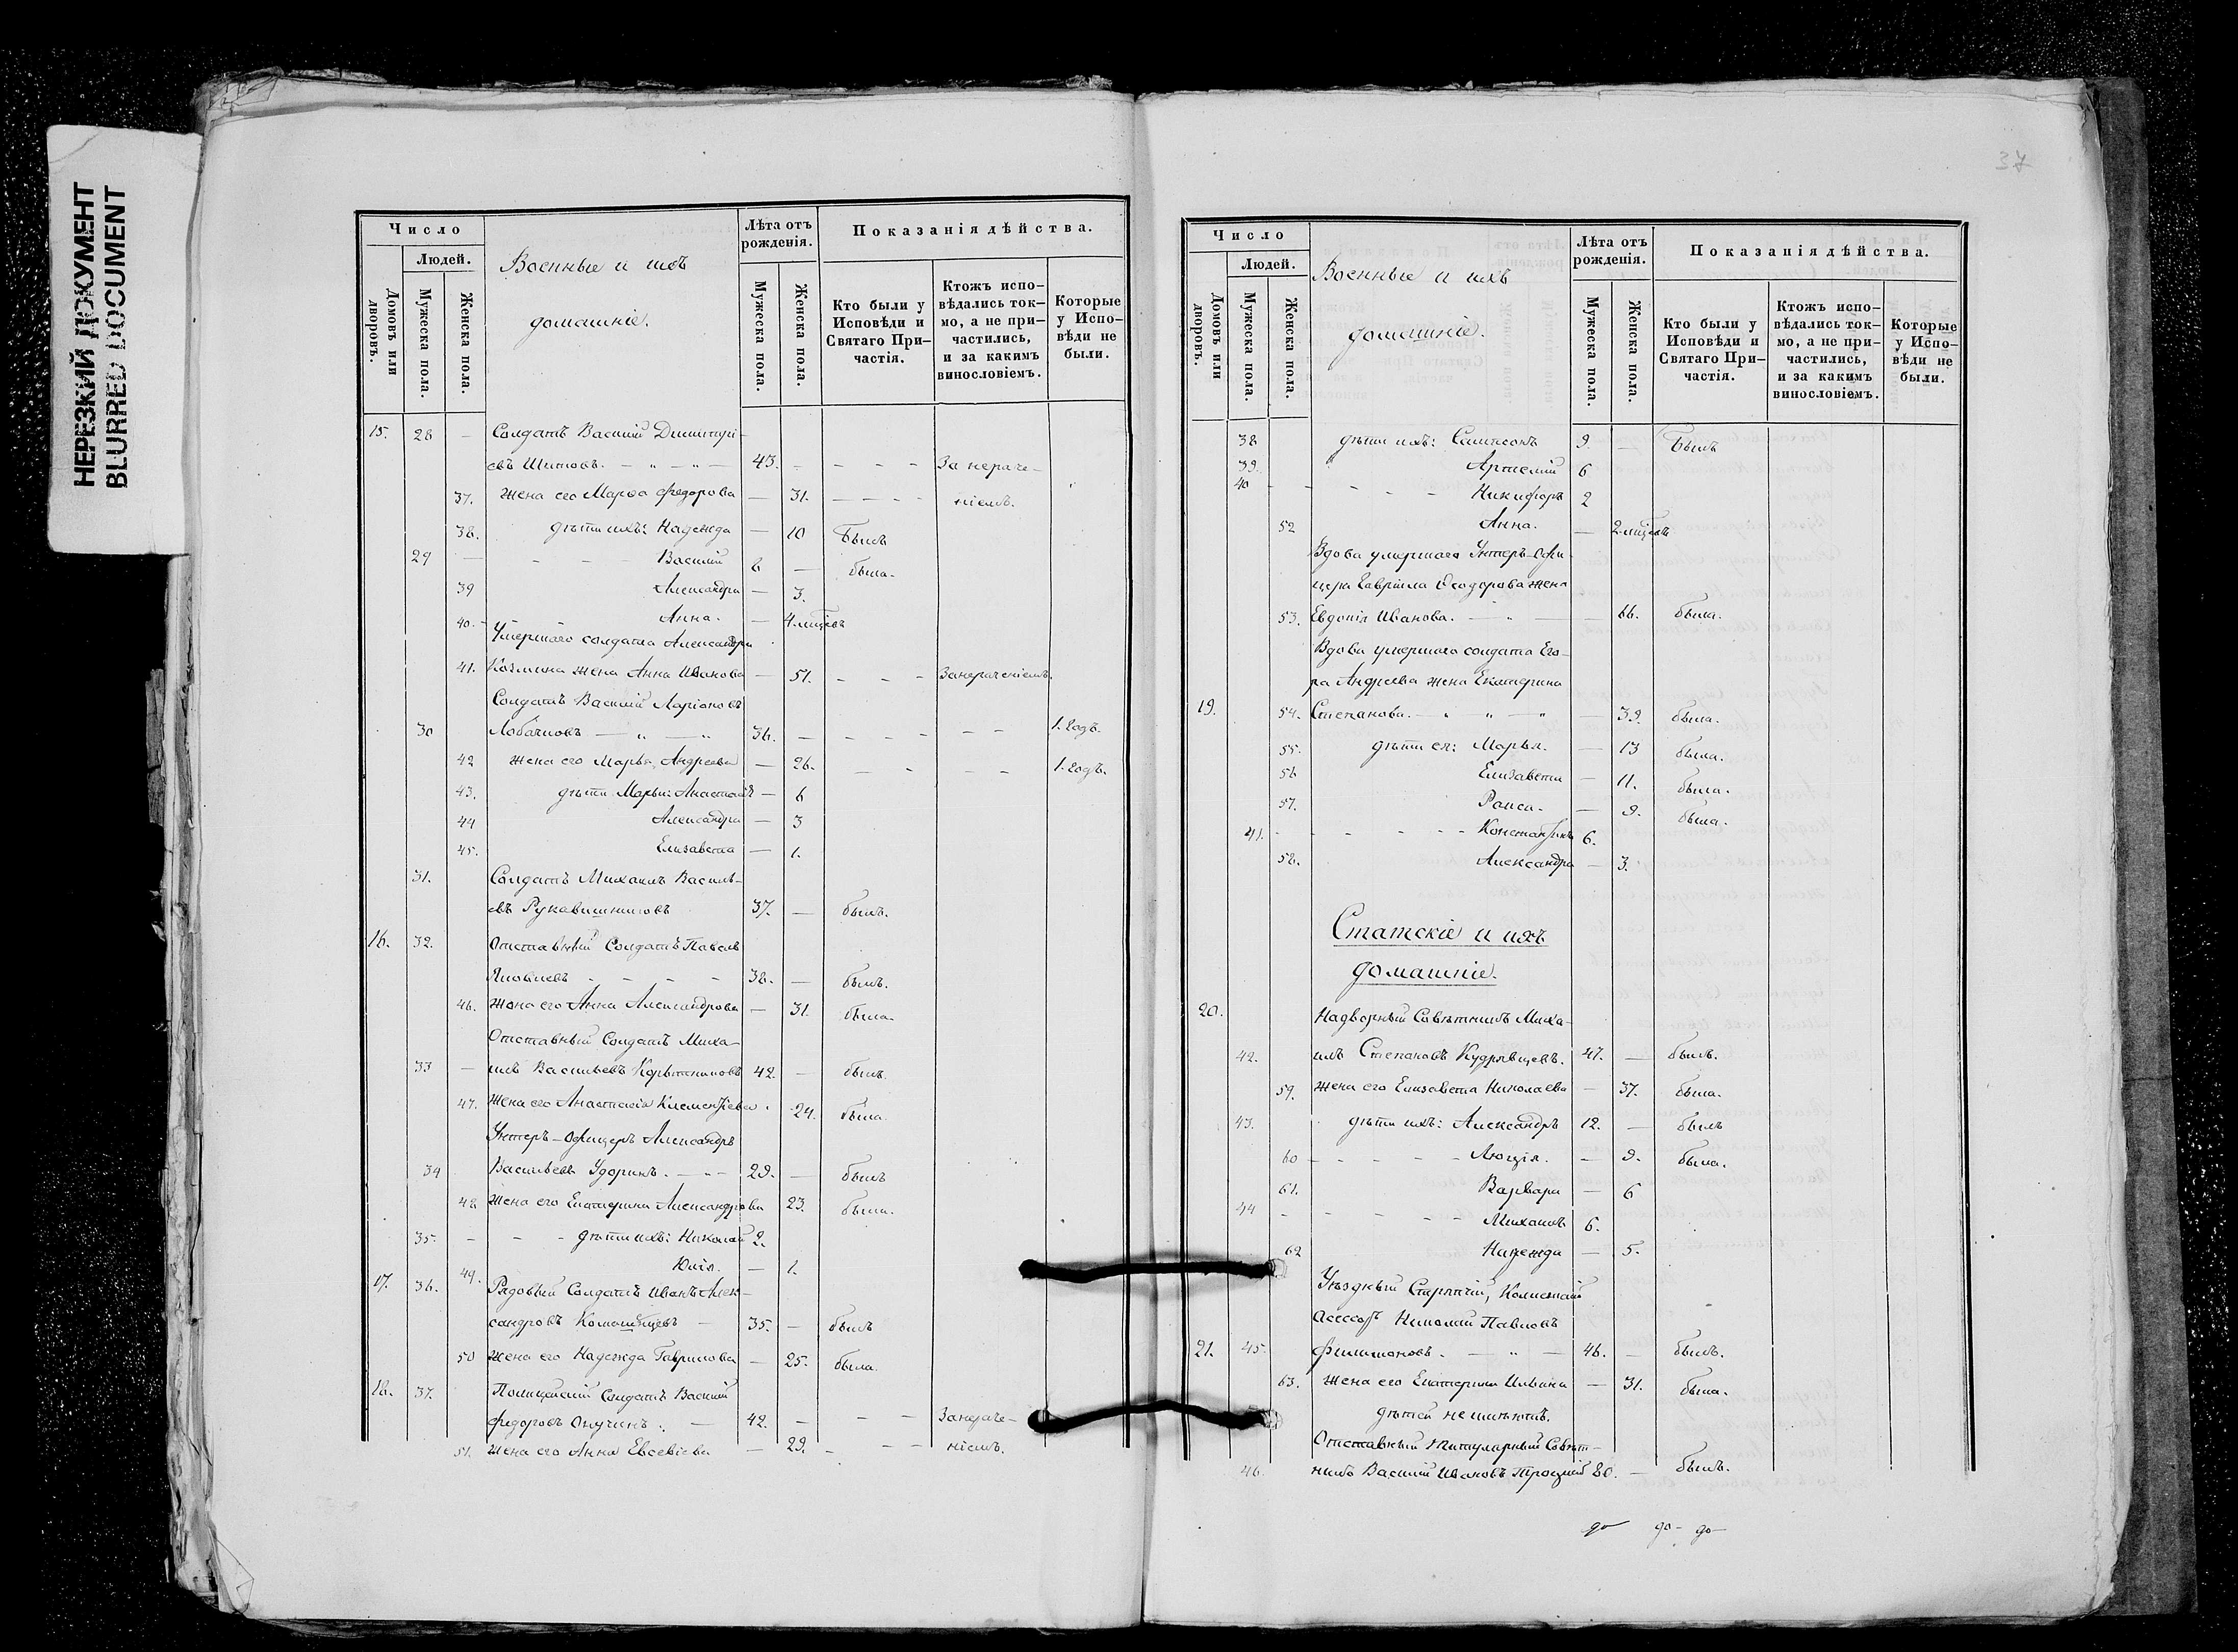 НЕРЕЗКИЙ ДОКУМЕНТ
BLURRED DOCUMENT
Число
Людей.
Домовъ или дворовъ.
Мужеска пола.
Женска пола.
Военные и ихъ
домашніе.
Лѣта отъ рожденія.
Мужеска пола.
Женска пола.
Показанія дѣйства.
Кто были у Исповѣди и Святаго При-частія.
Ктожъ испо-вѣдались ток-мо, а не при-частились, и за какимъ винословіемъ.
Которые у Испо-вѣди не были.
15. 28 — Солдатъ Василій Димитрі-
евъ Шитовъ. — " — " — 43. - - - - За нераче-
37. жена его Марѳа Ѳедорова — 31. - - - - ніемъ.
38. дѣти ихъ: Надежда — 10 былъ
29 — - - - Василій 6 — была.
39 Александра — 3.
40. - - Анна. — 4. мѣсяцевъ
Умершаго солдата Александра
41. Козмина жена Анна Иванова — 51. - - - За нераченіемъ.
Солдатъ Василій Ларіоновъ
30 Лобачновъ — " — " 36. — - - - - - - 1. годъ.
42 жена его Марья Андреева — 26. - - - - 1. годъ.
43. дѣти Марьи: Анастасія — 6
44 Александра — 3
45. Елизавета — 1.
31. Солдатъ Михаилъ Василь-
евъ Рукавишниковъ 37. — былъ.
16. 32. Отставный Солдатъ Павелъ
Яковлевъ - - - - - 38. — былъ.
46. жена его Анна Александрова — 31. была.
Отставный Солдатъ Миха-
33 — илъ Васильевъ 42. — былъ.
47. Жена его Анастасія Клементіева . 24. была.
Унтеръ-Офицеръ Александръ
34 Васильевъ Ударинъ. — " — 29. — былъ
48 жена его Екатерина Александрова 23. была.
35. - - - дѣти ихъ: Николай 2.
49. Юлія. — 1.
17. 36. Рядовый Солдатъ Иванъ Алек-
сандровъ — 35. — былъ
50 жена его Надежда Гаврилова — 25. была.
18. 37. Полицейскій Солдатъ Василій
Ѳедоровъ Онучинъ. — 42. - - - За нераче-
51. жена его Анна Евсевіева — 29. - - - ніемъ.
37
Число
Людей.
Домовъ или дворовъ.
Мужеска пола.
Женска пола.
Военные и ихъ
домашніе.
Лѣта отъ рожденія.
Мужеска пола.
Женска пола.
Показанія дѣйства.
Кто были у Исповѣди и Святаго При-частія.
Ктожъ испо-вѣдались ток-мо, а не при-частились, и за какимъ винословіемъ.
Которые у Испо-вѣди не были.
38 дѣти ихъ: Сампсонъ 9. — былъ
39. Артемій 6
40 - - - - - Никифоръ 2
52 Анна. — 2 мѣсяцевъ
Вдова умершаго Унтеръ-Офи-
цера Гавріила Ѳеодорова жена
53. Евдокія Иванова. — " — — 66. была.
Вдова умершаго солдата Его-
ра Андреева жена Екатерина
19. 54. Степанова. — " " — " — 39. была.
55. дѣти ея: Марья. — 13 была.
56 Елизавета — 11. была.
57. Раиса. — 9. была.
41. - - - - - Константинъ 6.
58. Александра — 3.
Статскіе и ихъ
домашніе.
20. Надворный Совѣтникъ Миха-
42. илъ Степановъ Кудрявцевъ. 47. — былъ.
59. жена его Елизавета Николаева — 37. была.
43. дѣти ихъ: Александръ 12. — былъ
60 - - - - - Люція. — 9. была.
61. Варвара — 6
44 - - - - - Михаилъ 6.
62 Надежда — 5.
Уѣздный Стряпчій, Колежскій
Асессоръ Николай Павловъ
21. 45. Филимоновъ. — " — 46. — былъ.
63. жена его Екатерина Ильина — 31. была.
дѣтей не имѣютъ.
Отставный Титулярный Совѣт-
46. никъ Василій Ивановъ Троицкій 80. — былъ.
до до - до